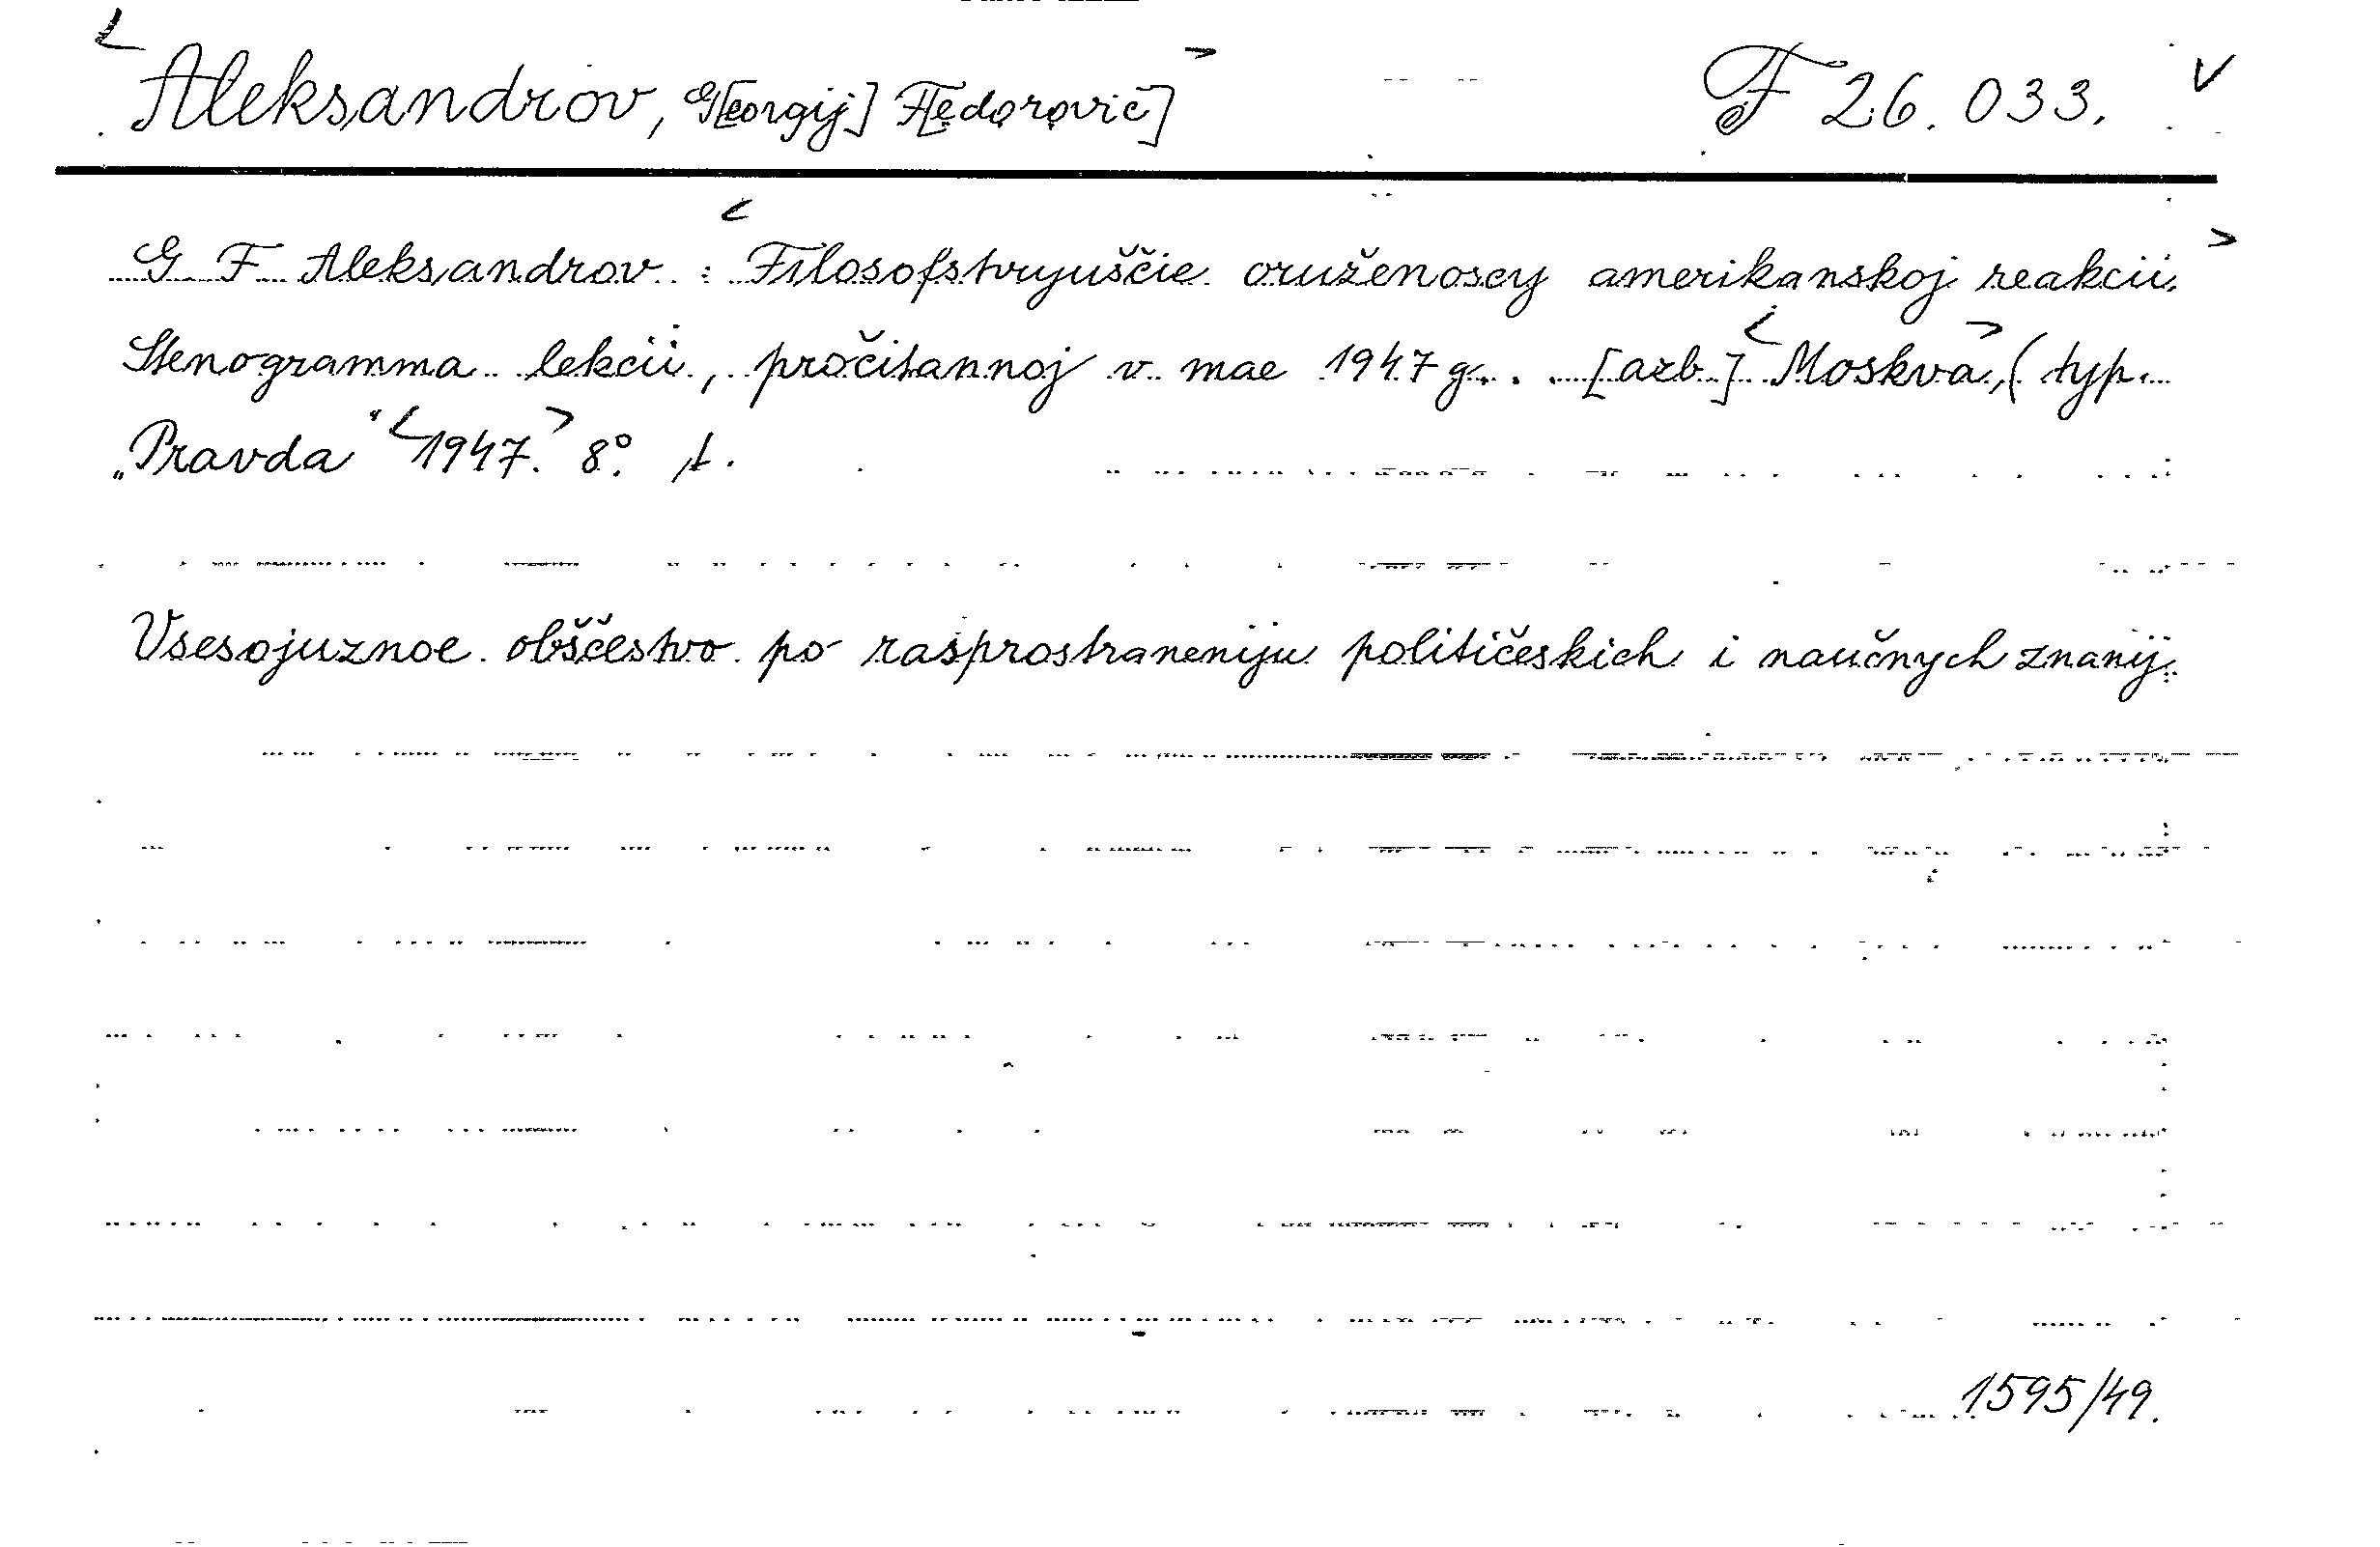 <Aleksandrov, G[eorgij] F[edorovič]> F 26.033. V
G F Aleksandrov : <Filosofstvujuščie oruženoscy amerikanskoj reakcii.>
Stenogramma lekcii, pročitannoj v mae 1947 g.. . [azb] <Moskva>, (typ.
„Pravda" <1947.> 8°.
Vsesojuznoe obščestvo po rasprostraneniju političeskich i naučnych znanij.
1595/49.